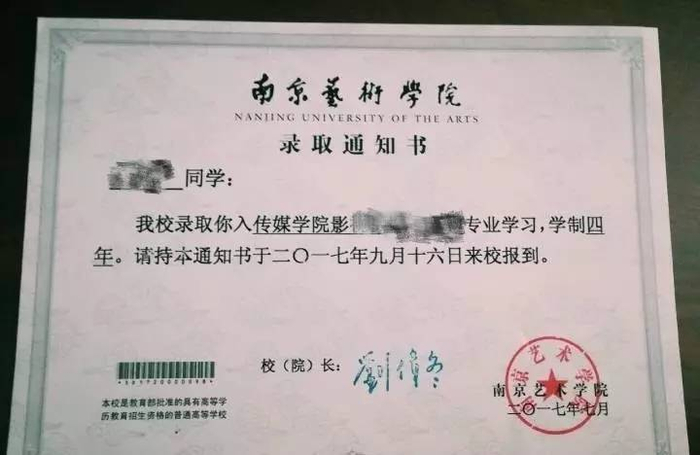 南京藝術學院
NANJING UNIVERSITY OF THE ARTS
录取通知书
同学：
我校录取你入传媒学院影专业学习，学制四
年。请持本通知书于二〇一七年九月十六日来校报到。
校（院）长：劉偉冬
南京艺术学院
南京艺术学院
二〇一七年七月
本校是教育部批准的具有高等学
历教育招生资格的普通高等学校